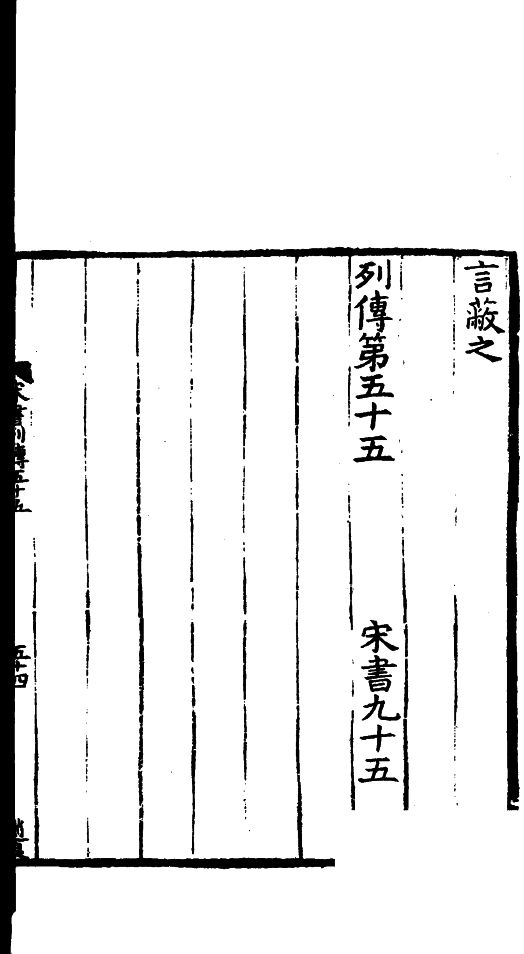 言蔽之
列傳第五十五　宋書九十五
宋書列傳五十五
五十四